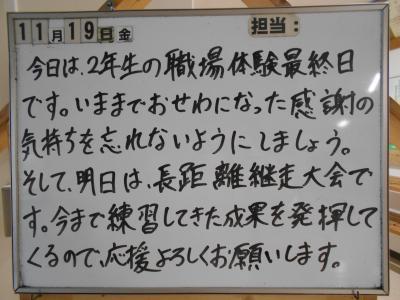 11月19日金 担当：
今日は、2年生の職場体験最終日
です。いままでおせわになった感謝の
気持ちを忘れないようにしましょう。
そして、明日は、長距離継走大会で
す。今まで練習してきた成果を発揮して
くるので、応援よろしくお願いします。